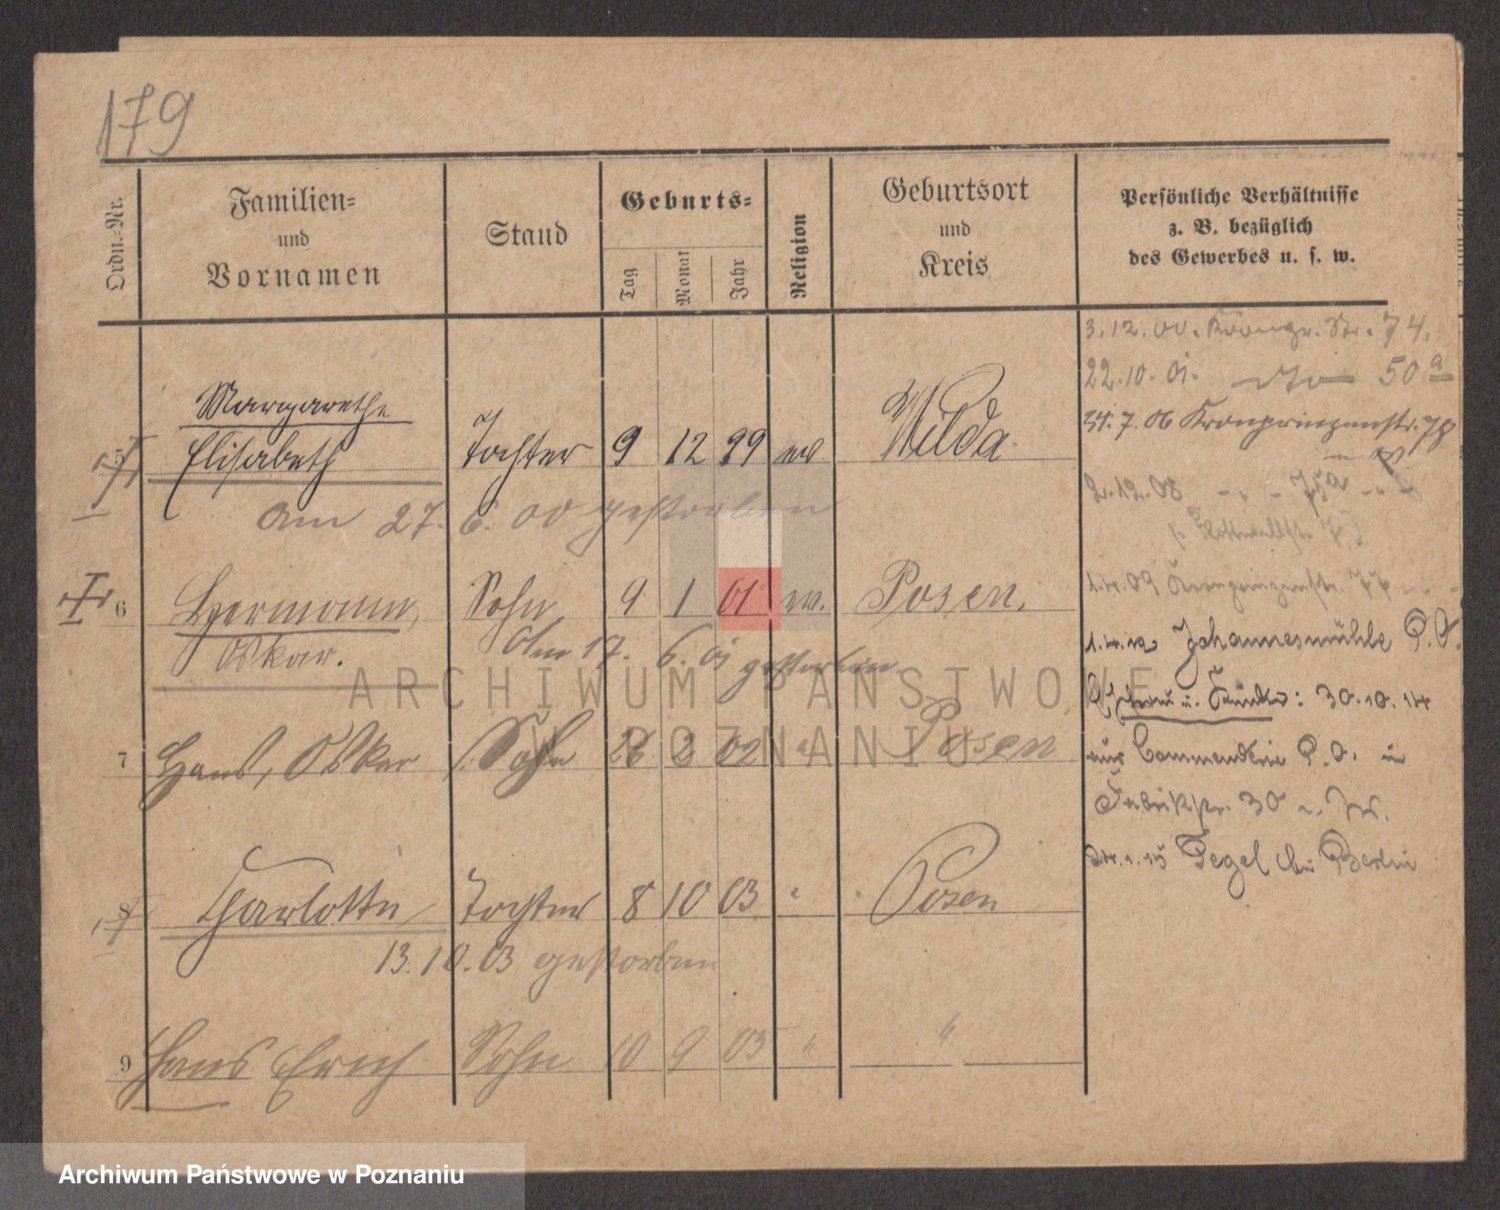 179
Ordn.-Nr.
Familien-
und
Vornamen
Stand
Geburts-
Tag
Monat
Jahr
Religion
Geburtsort
und
Kreis
Persönliche Verhältnisse
z. B. bezüglich
des Gewerbes u. s. w.
3.12.00. Kronpr. Str. 74.
22.10.01. dto 50a
Margarethe
5 Elisabeth Tochter 9 12 99 ev Wilda.
31.7.06 Kronprinzenstr. 78
am 27. 6. 00 gestorben
2.12.08
6 Hermann, Sohn 9 1 01 ev. Posen.
1.4.09 Kronprinzenstr. 77
Oskar. Am 17. 6. 01 gestorben
Johannesmühle P.O.
Ehefrau u. Kinder: 30.10.14
7 Hans, Oskar Sohn 26 2 02 " Posen
aus Commenderie P.O. in
Fabrikstr. 30
24.1.15 Tegel bei Berlin
8 Charlotte Tochter 8 10 03 " Posen
13.10.03 gestorben
9 Hans Erich Sohn 10 9 05 " "
ARCHIWUM PAŃSTWOWE
W POZNANIU
Archiwum Państwowe w Poznaniu